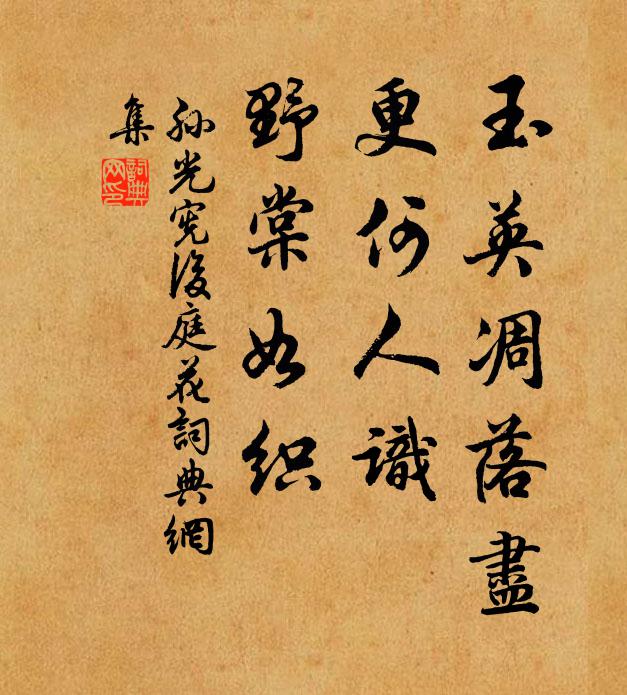 玉英凋落盡
更何人識
野棠如织
孙光宪後庭花詞典網
集
詞典
网印